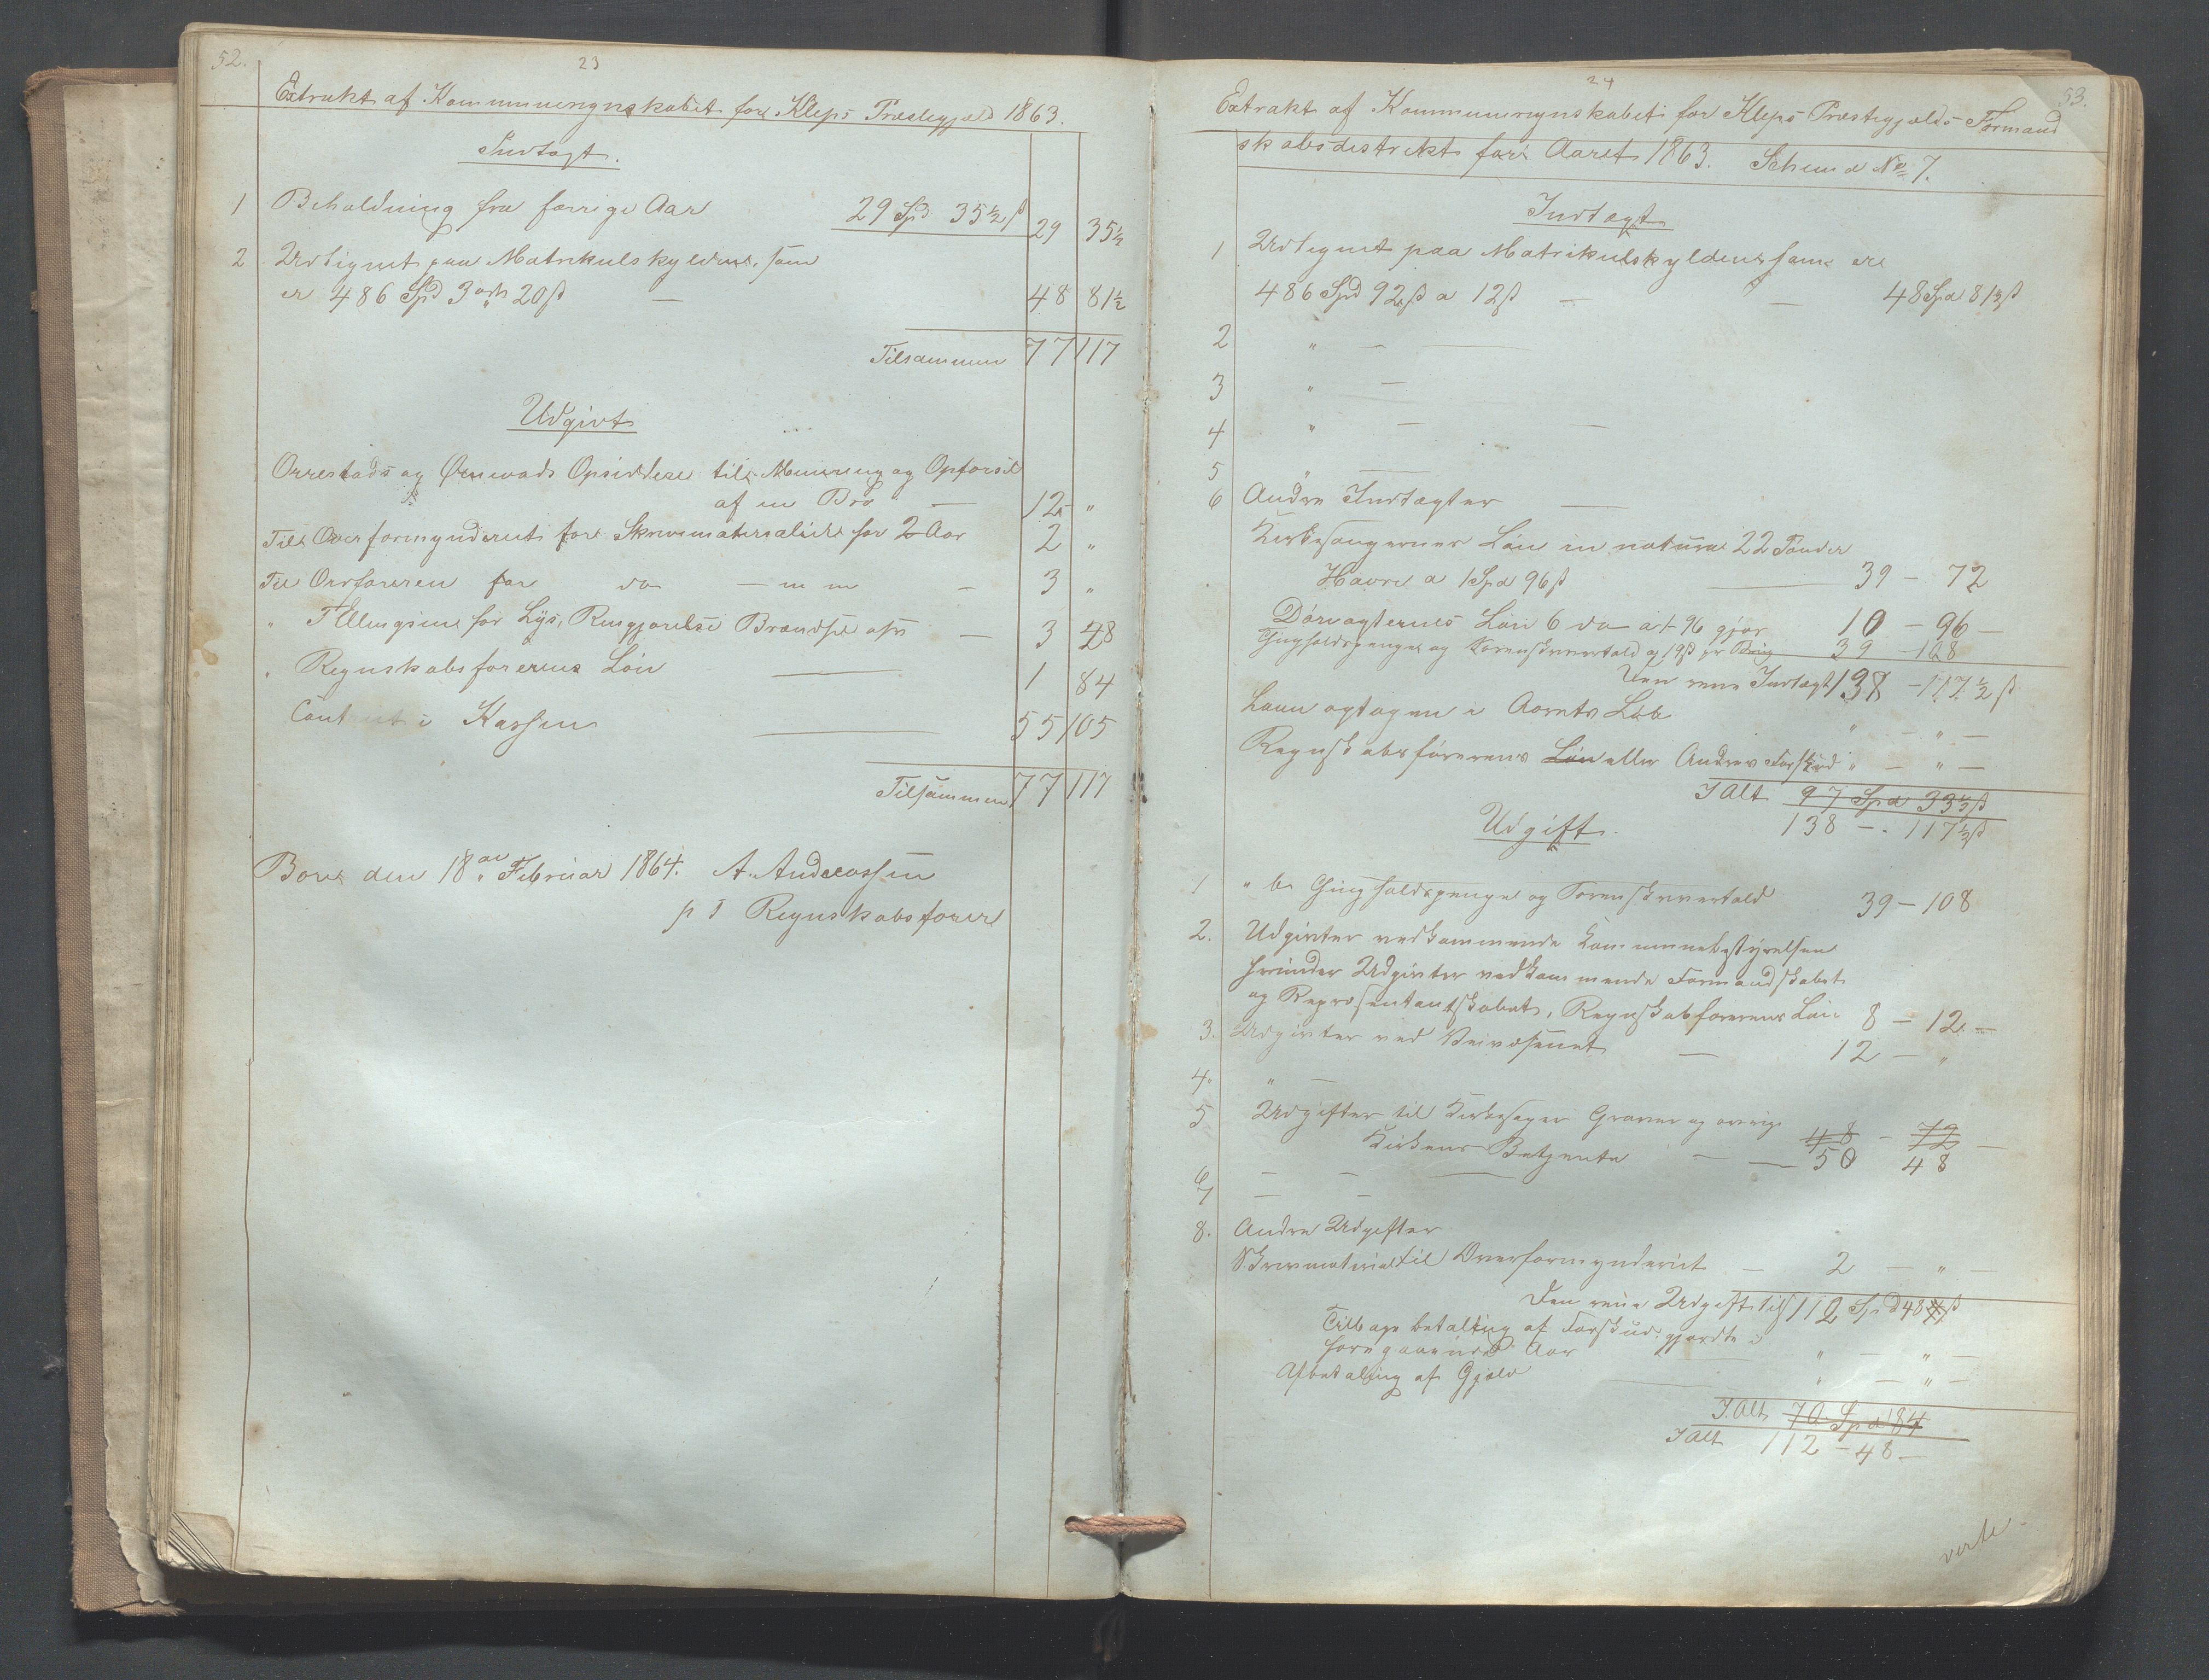 52.
23
Extrakt af Kommuneregnskabet for Kleps Præstegjæld 1863.
Indtægt.
1 Beholdning fra forrige Aar 29 Spd 35½ ß 29 35½
2 Udlignet paa Matrikulskylden, som
er 486 Spd 3 ort 20 ß — 48 81½
Tilsammen 77 117
Udgivt
Orrestads og Ørewads Opsiddere til Muurung og Opførsel
af en Bro — 12 "
Til Overformynderiet for Skrivematerialier for 2 Aar 2 "
Til Ordføreren for do — " " — 3 "
" for Lys, Rengjørelse Brændsel ofv — 3 48
" Regnskabsførerens Løn — 1 84
Contant i Kassen — 55 105
Tilsammen 77 117
Bore den 18de Februar 1864. A. Andreassen
p t Regnskabsfører
24
53.
Extrakt af Kommuneregnskabet for Kleps Præstegjælds Formand
skabsdistrikt for Aaret 1863. Schema No 7.
Indtægt
1 Udlignet paa Matrikulskylden som er
486 Spd 92 ß a 12 ß — — 48 Spd 81½ ß
2 " — —
3 " —
4 " — —
5 " —
6 Andre Indtægter —
Kirkesangerens Løn in natura 22 Tønder
Havre a 1 Spd 96 ß — 39 — 72
Dørvogternes Løn 6 do a 1-96 gjør 10 — 96 —
Thingholdspenge og Forenskvertold a 19 ß pr 39 — 108
Den rene Indtægt 138 — 117½ ß
Laan optagen i Aarets Løb " — " —
Regnskabsførerens Løn eller Andres Forskud " — " —
I Alt 97 Spd 33½ ß
138 — 117½ ß
Udgift.
1 " b Thingholdspenge og Forenskvertold 39 — 108
2. Udgivter vedkommende Kommunebestyrelsen
herunder Udgivter vedkommende Formandskabet
og Repræsentantskabet, Regnskabsførerens Løn 8 — 12 —
3. Udgivter ved Veivæsenet — 12 — "
4. " —
5 Udgifter til Kirkesanger Graver og øvrige 48 — 72 —
Kirkens Betjente — — 50 48
6 — — —
7 — —
8. Andre Udgifter
Skrivmaterial til Overformynderiet — 2 — " —
Den rene Udgift til 112 Spd 48 ß
Tilbagebetaling af Forskud gjordte i
foregaaende Aar — " — " —
Afbetaling af Gjæld — " — " —
I Alt 70 Spd 84
I Alt 112 — 48 —
verte.